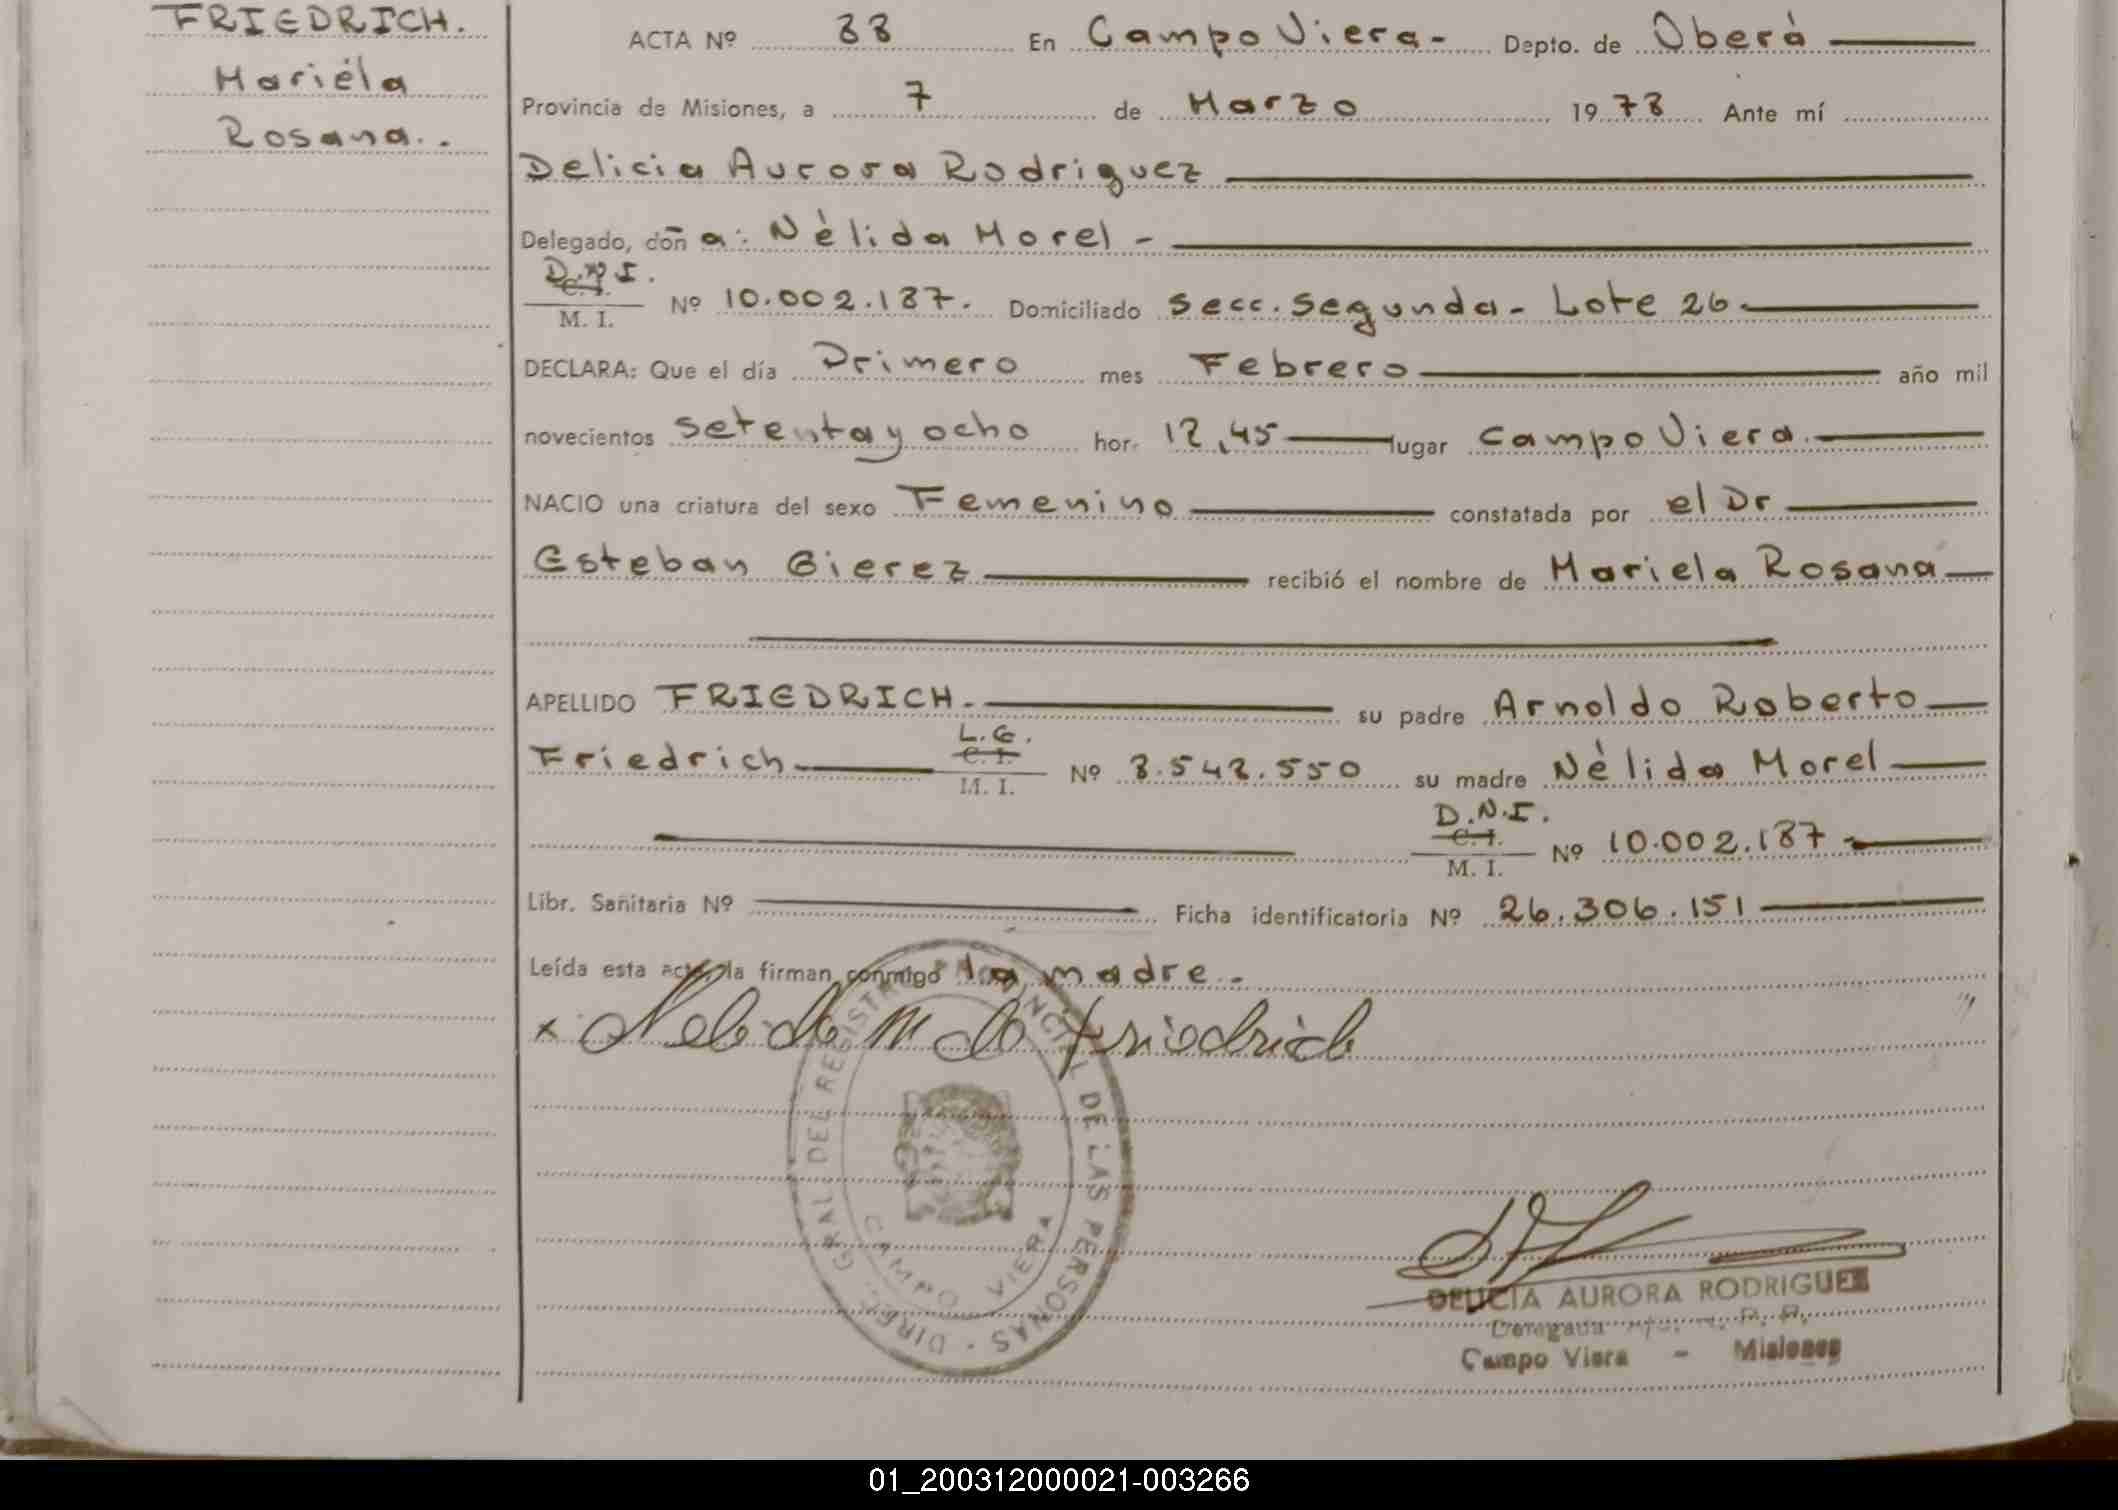 FRIEDRICH.
Mariéla
Rosana..
ACTA Nº 88 En Campo Viera- Depto. de Oberá
Provincia de Misiones, a 7 de Marzo 1978 Ante mí
Delicia Aurora Rodriguez
Delegado, don a: Nélida Morel -
D.N.I.
C. I.
M. I. Nº 10.002.187. Domiciliado Secc. Segunda - Lote 26
DECLARA: Que el día Primero mes Febrero año mil
novecientos setenta y ocho hor. 12,45 lugar Campo Viera.
NACIO una criatura del sexo Femenino constatada por el Dr
Esteban Gierez recibió el nombre de Mariela Rosana
APELLIDO FRIEDRICH. su padre Arnoldo Roberto
L.E.
C. I.
Friedrich M. I. Nº 8.548.550 su madre Nélida Morel
D.N.I.
C. I.
M. I. Nº 10.002.187
Libr. Sanitaria Nº Ficha identificatoria Nº 26.306.151
Leída esta acta, la firman conmigo la madre.-
x Nelida M de Friedrich
DIREC. GRAL. DEL REGISTRO PROVINCIAL DE LAS PERSONAS
CAMPO VIERA
DELICIA AURORA RODRIGUEZ
Delegada R. P. P.
Campo Viera - Misiones
01_200312000021-003266